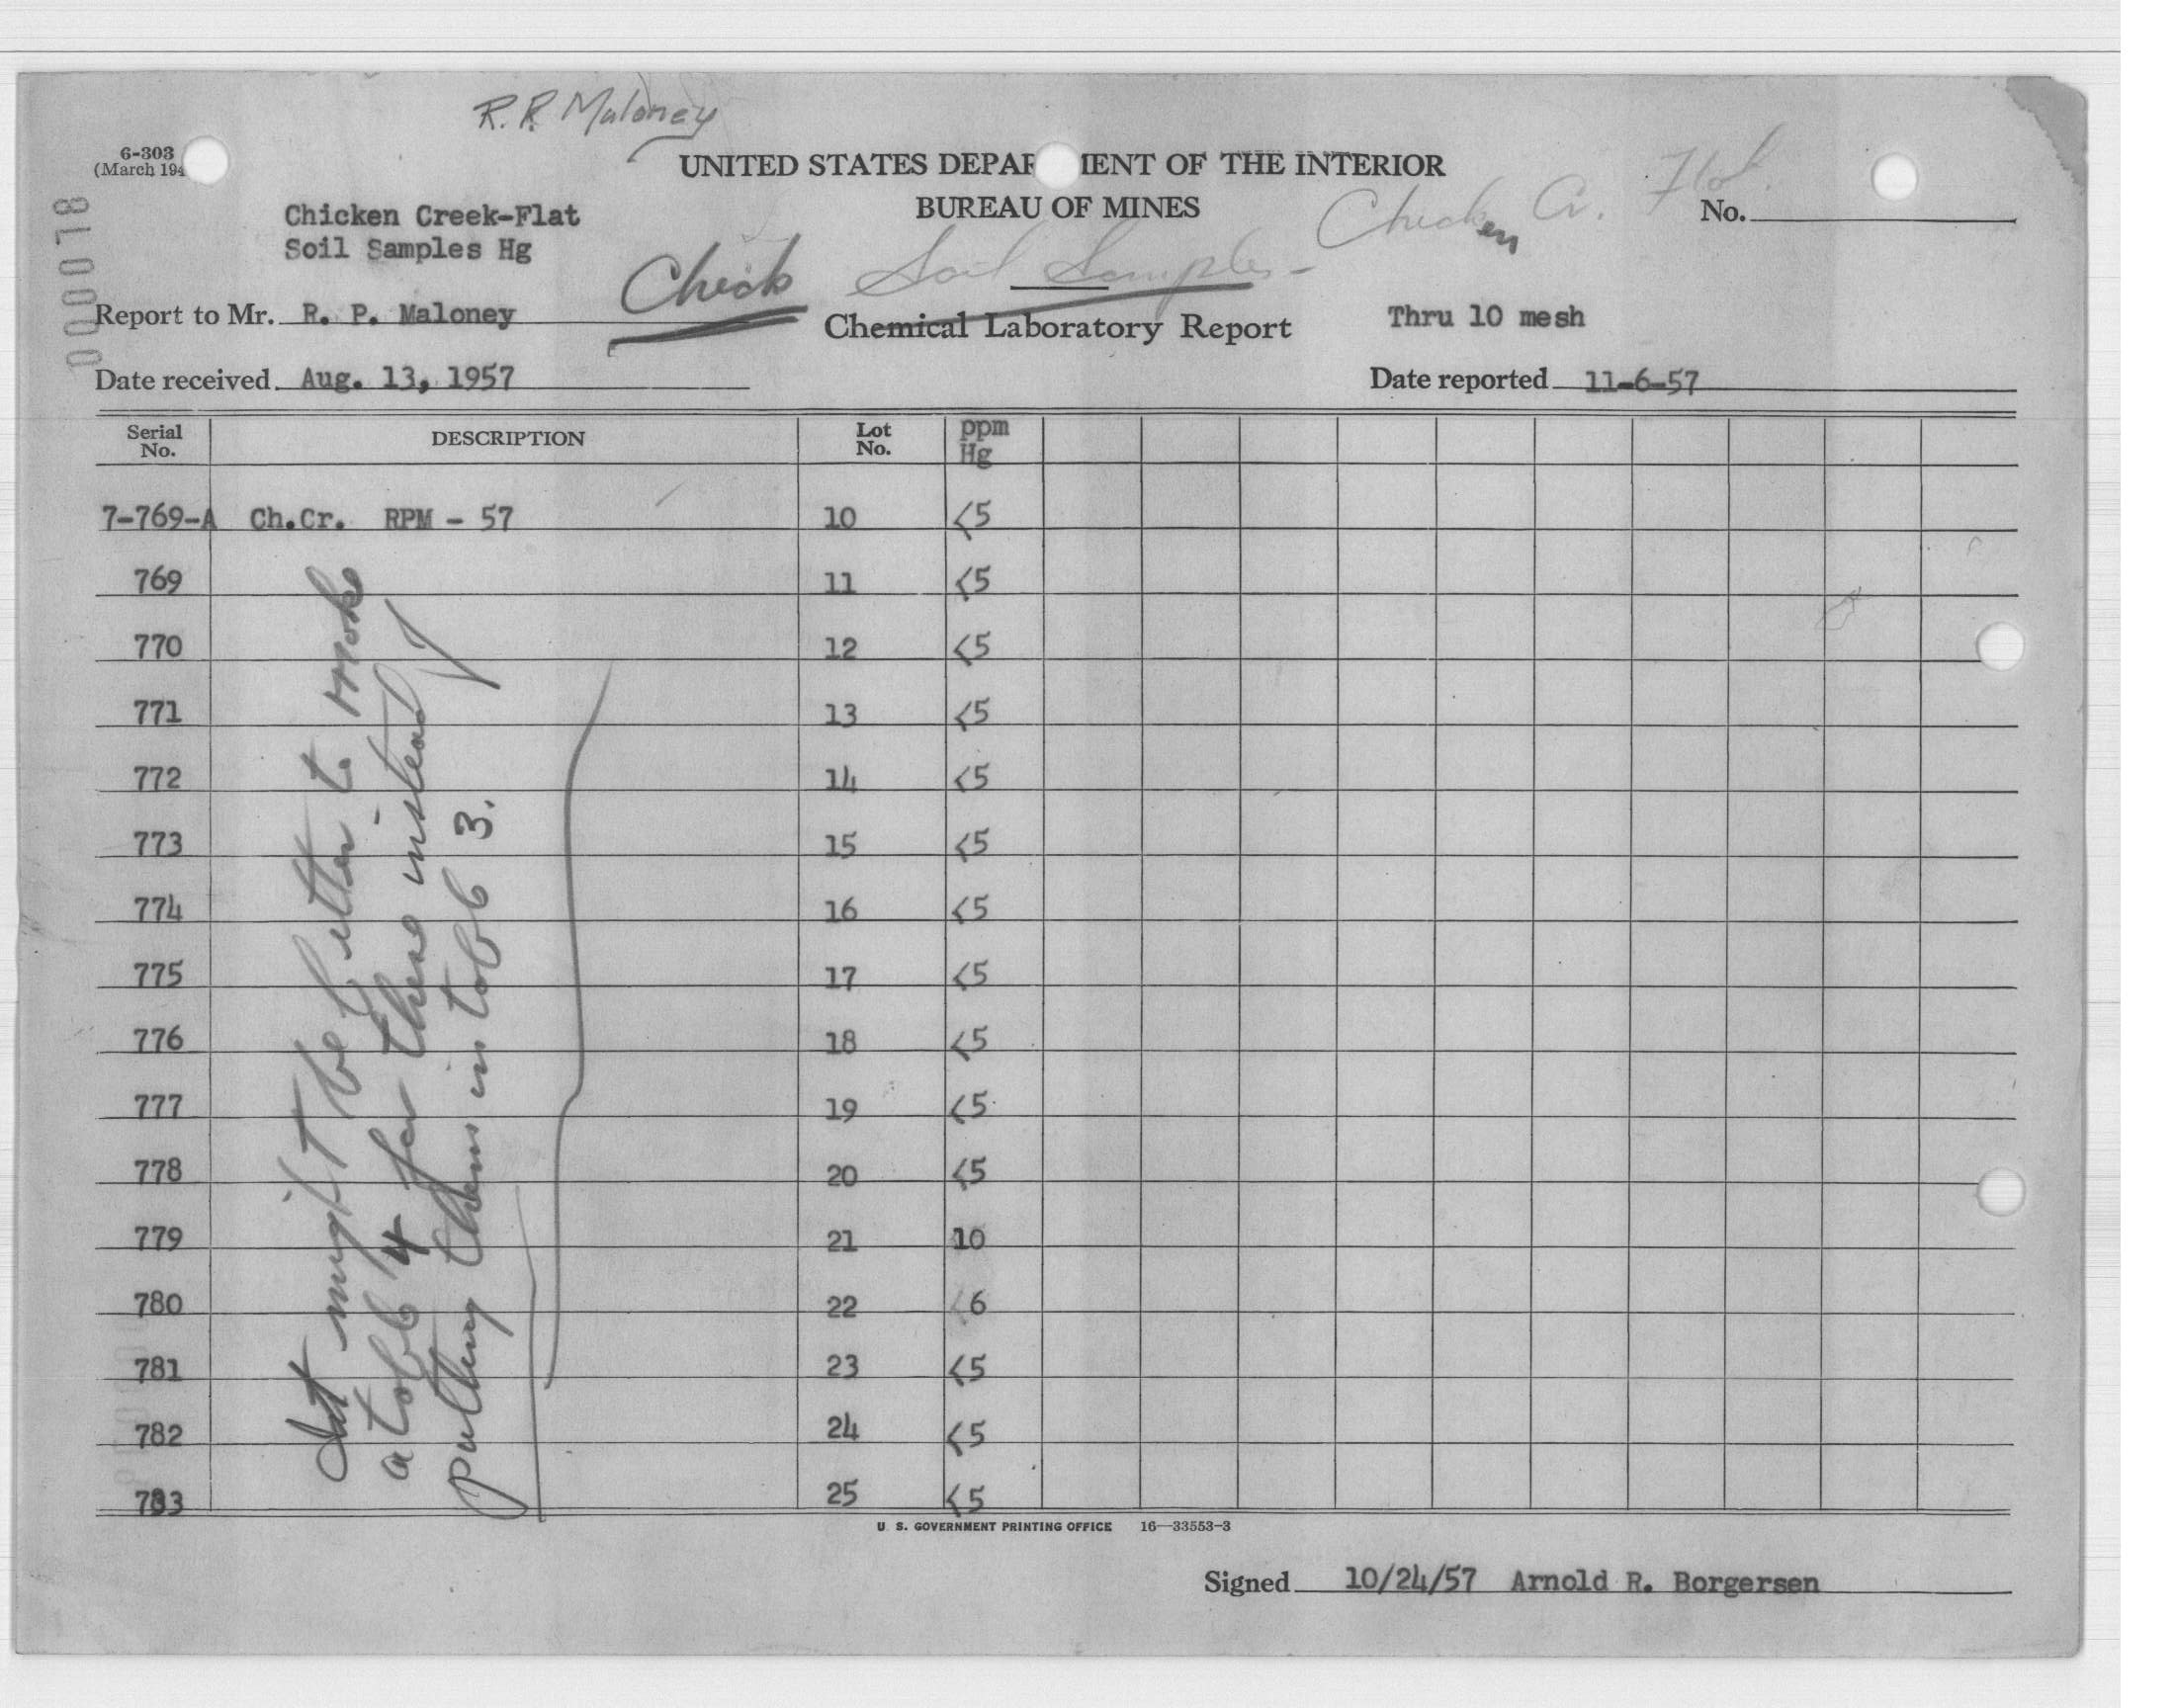 R. P. Maloney
6-303
(March 194
UNITED STATES DEPAR MENT OF THE INTERIOR
BUREAU OF MINES
Chicken Cr. Flat
No.
Chicken Creek-Flat
Soil Samples Hg
Check Soil Samples -
810000
Report to Mr. R. P. Maloney
Chemical Laboratory Report
Thru 10 mesh
Date received Aug. 13, 1957
Date reported 11-6-57
Serial No. DESCRIPTION Lot No. ppm Hg
7-769-A Ch.Cr. RPM - 57 10 <5
769 11 <5
770 12 <5
771 13 <5
772 14 <5
773 15 <5
774 16 <5
775 17 <5
776 18 <5
777 19 <5
778 20 <5
779 21 10
780 22 <6
781 23 <5
782 24 <5
783 25 <5
It might be better to make
a table 4 for these instead
putting them in table 3.
U. S. GOVERNMENT PRINTING OFFICE 16—33553-3
Signed 10/24/57 Arnold R. Borgersen